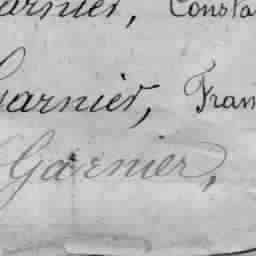 Garnier, Consta
Garnier, Fran
Garnier,